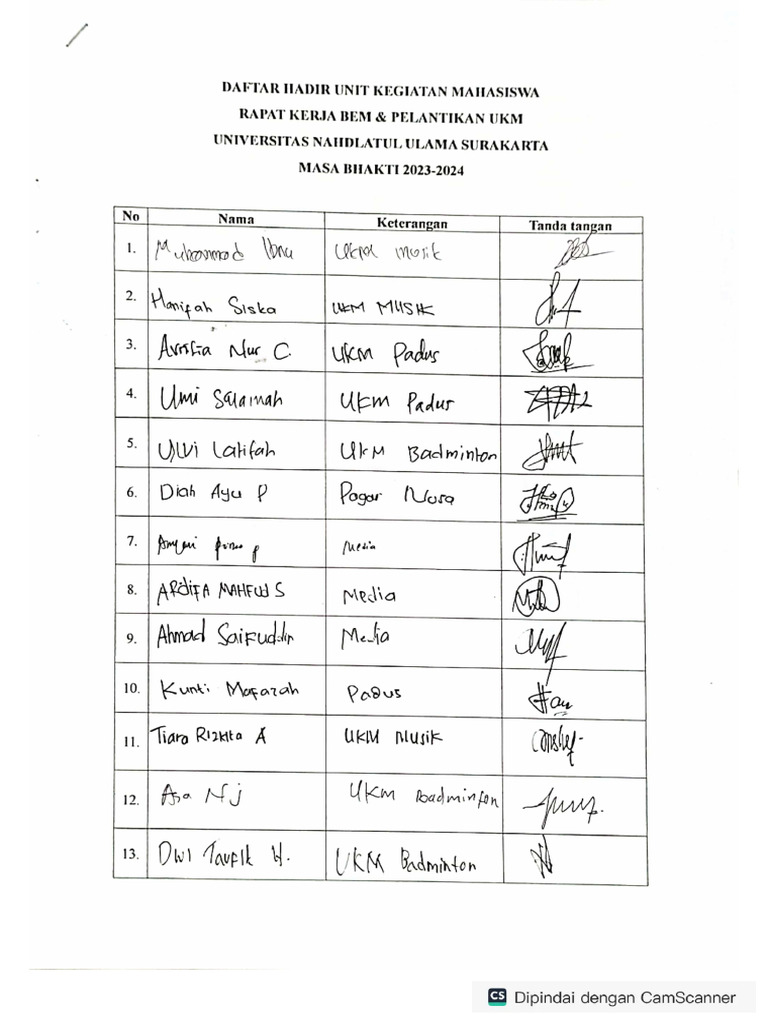 DAFTAR HADIR UNIT KEGIATAN MAHASISWA
RAPAT KERJA BEM & PELANTIKAN UKM
UNIVERSITAS NAHDLATUL ULAMA SURAKARTA
MASA BHAKTI 2023-2024
No Nama Keterangan Tanda tangan
1. Muhammad Ibnu UKM Musik
2. Hanifah Siska UKM MUSIK
3. Avistia Nur C. UKM Padus
4. Umi Salamah UKM Padus
5. Ulvi Latifah UKM Badminton
6. Diah Ayu P Pagar Nusa
7. Media
8. ARDIFA MAHFUD S Media
9. Ahmad Saifuddin Media
10. Kunti Mafazah PADUS
11. Tiara Rizkita A UKM Musik
12. UKM Badminton
13. Dwi Taufik H. UKM Badminton
CS Dipindai dengan CamScanner